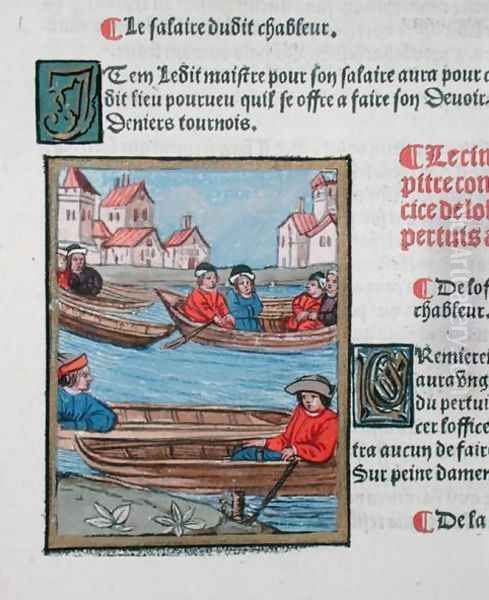 ¶ Le salaire dudit chableur.
ITem Ledit maistre pour son salaire aura pour c
dit lieu pourueu quil se offre a faire son Deuoir.
Deniers tournois.
¶ Le cin
pitre con
cice de lof
pertuis a
¶ De lof
chableur.
PRemieren
aura vng
du pertui
cer loffice
tra aucun de faire
Sur peine damen
¶ De la